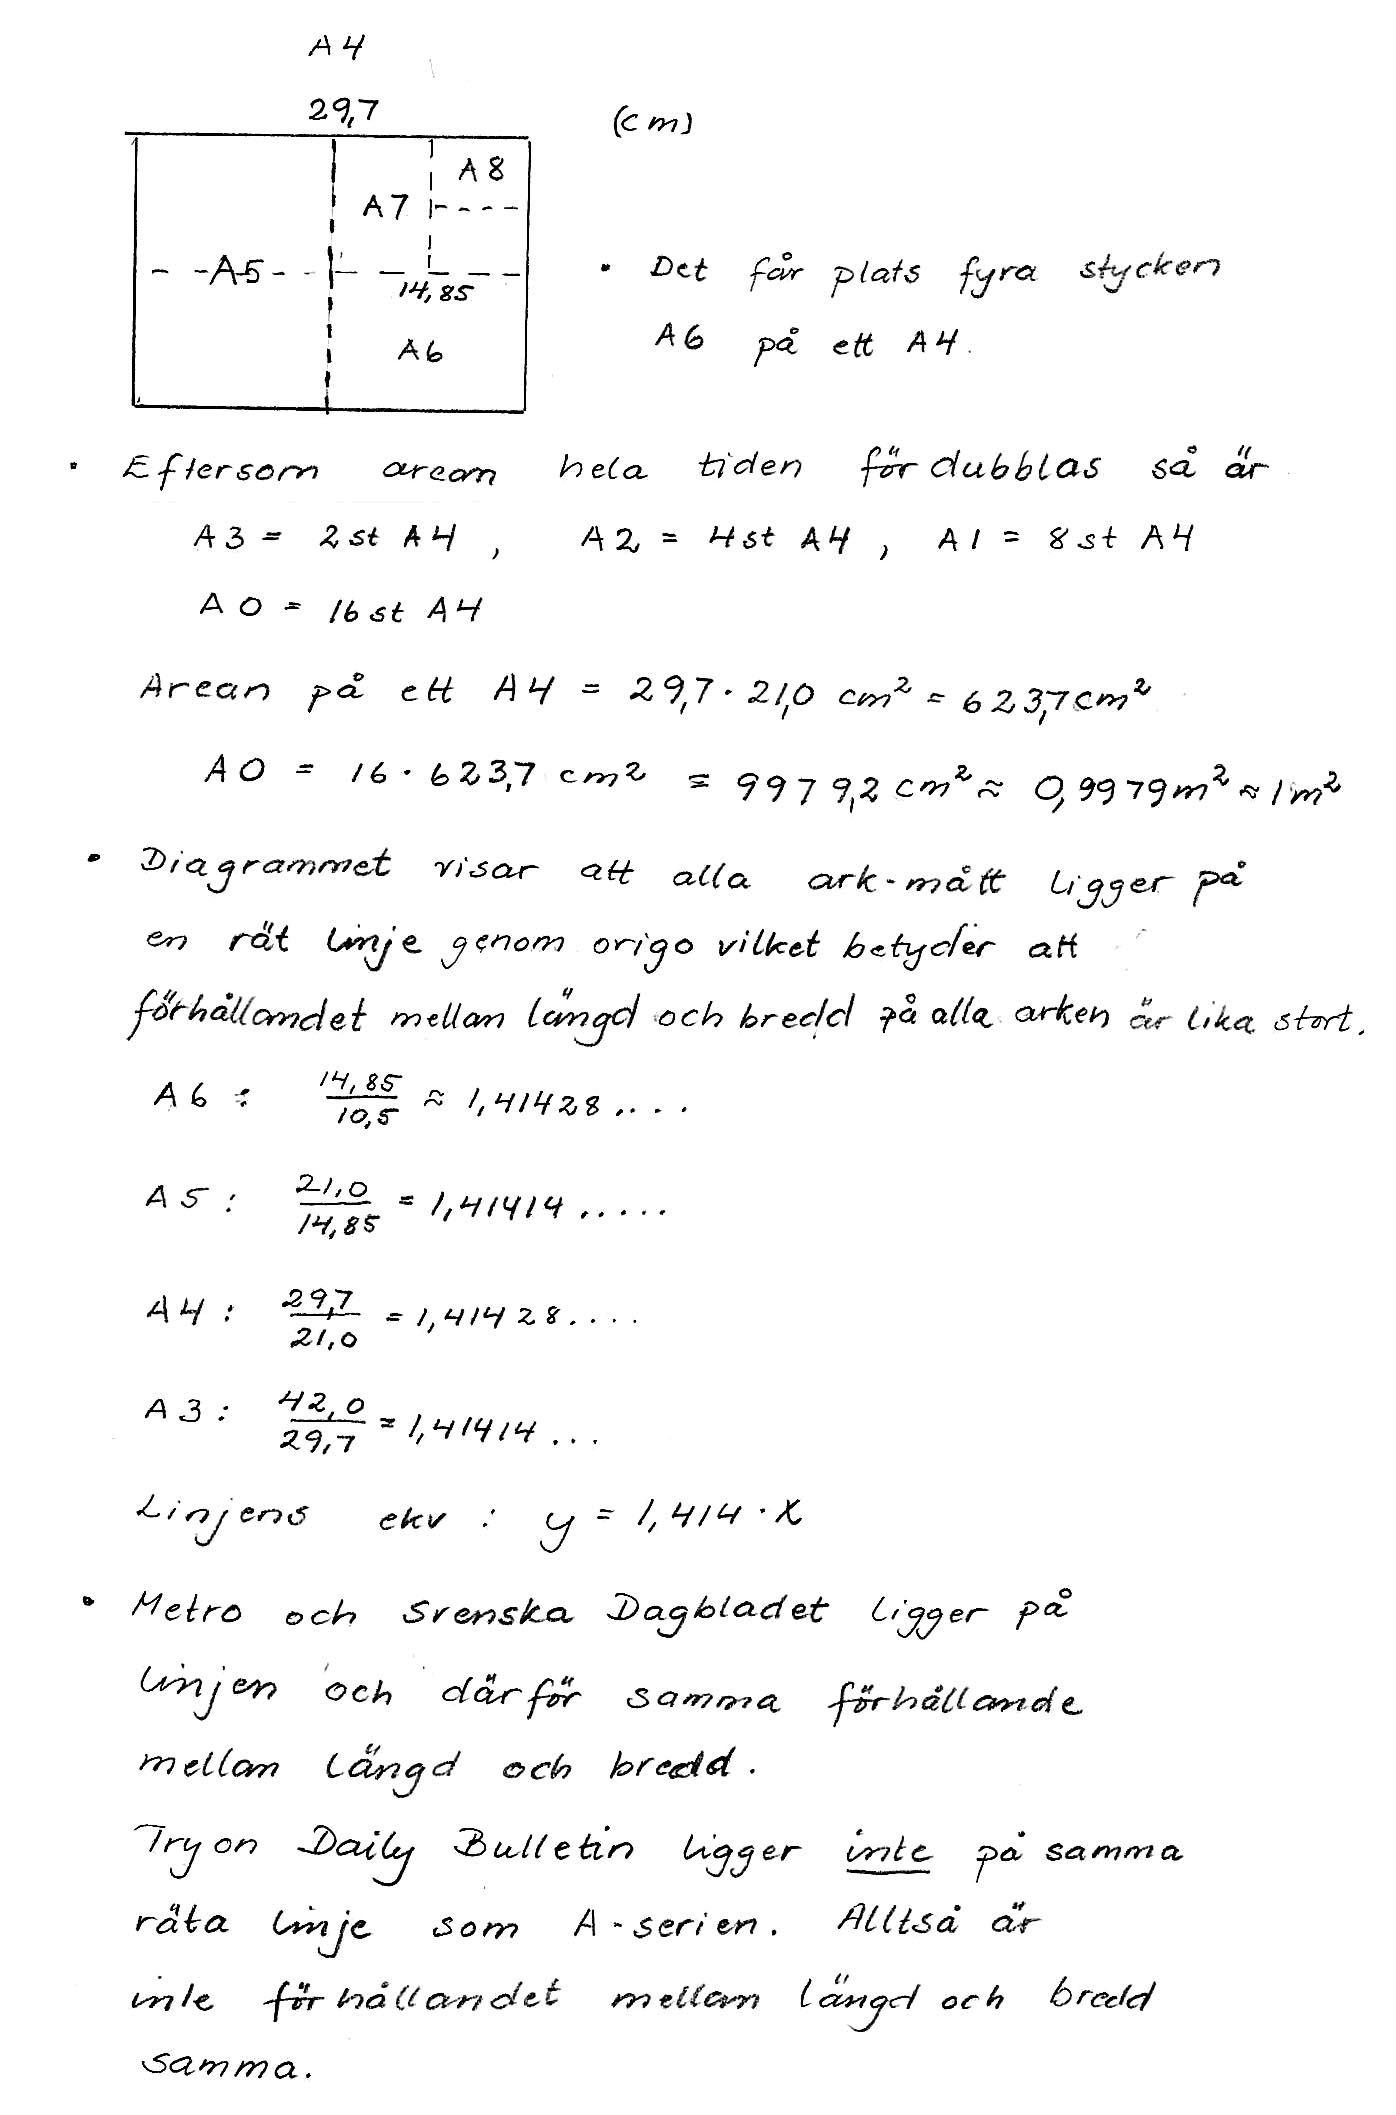 A4
29,7
(cm)
A8
A7
A5
14,85
A6
• Det får plats fyra stycken
A6 på ett A4.
• Eftersom arean hela tiden fördubblas så är
A3 = 2st A4, A2 = 4st A4, A1 = 8st A4
A0 = 16st A4
Arean på ett A4 = 29,7 · 21,0 cm² = 623,7cm²
A0 = 16 · 623,7 cm² = 9979,2 cm² ≈ 0,9979m² ≈ 1m²
• Diagrammet visar att alla ark-mått ligger på
en rät linje genom origo vilket betyder att
förhållandet mellan längd och bredd på alla arken är lika stort.
A6 : 14,85/10,5 ≈ 1,41428....
A5 : 21,0/14,85 = 1,41414.....
A4 : 29,7/21,0 = 1,41428....
A3 : 42,0/29,7 = 1,41414...
Linjens ekv : y = 1,414 · x
• Metro och Svenska Dagbladet ligger på
linjen och därför samma förhållande
mellan längd och bredd.
Tryon Daily Bulletin ligger inte på samma
räta linje som A-serien. Alltså är
inte förhållandet mellan längd och bredd
samma.